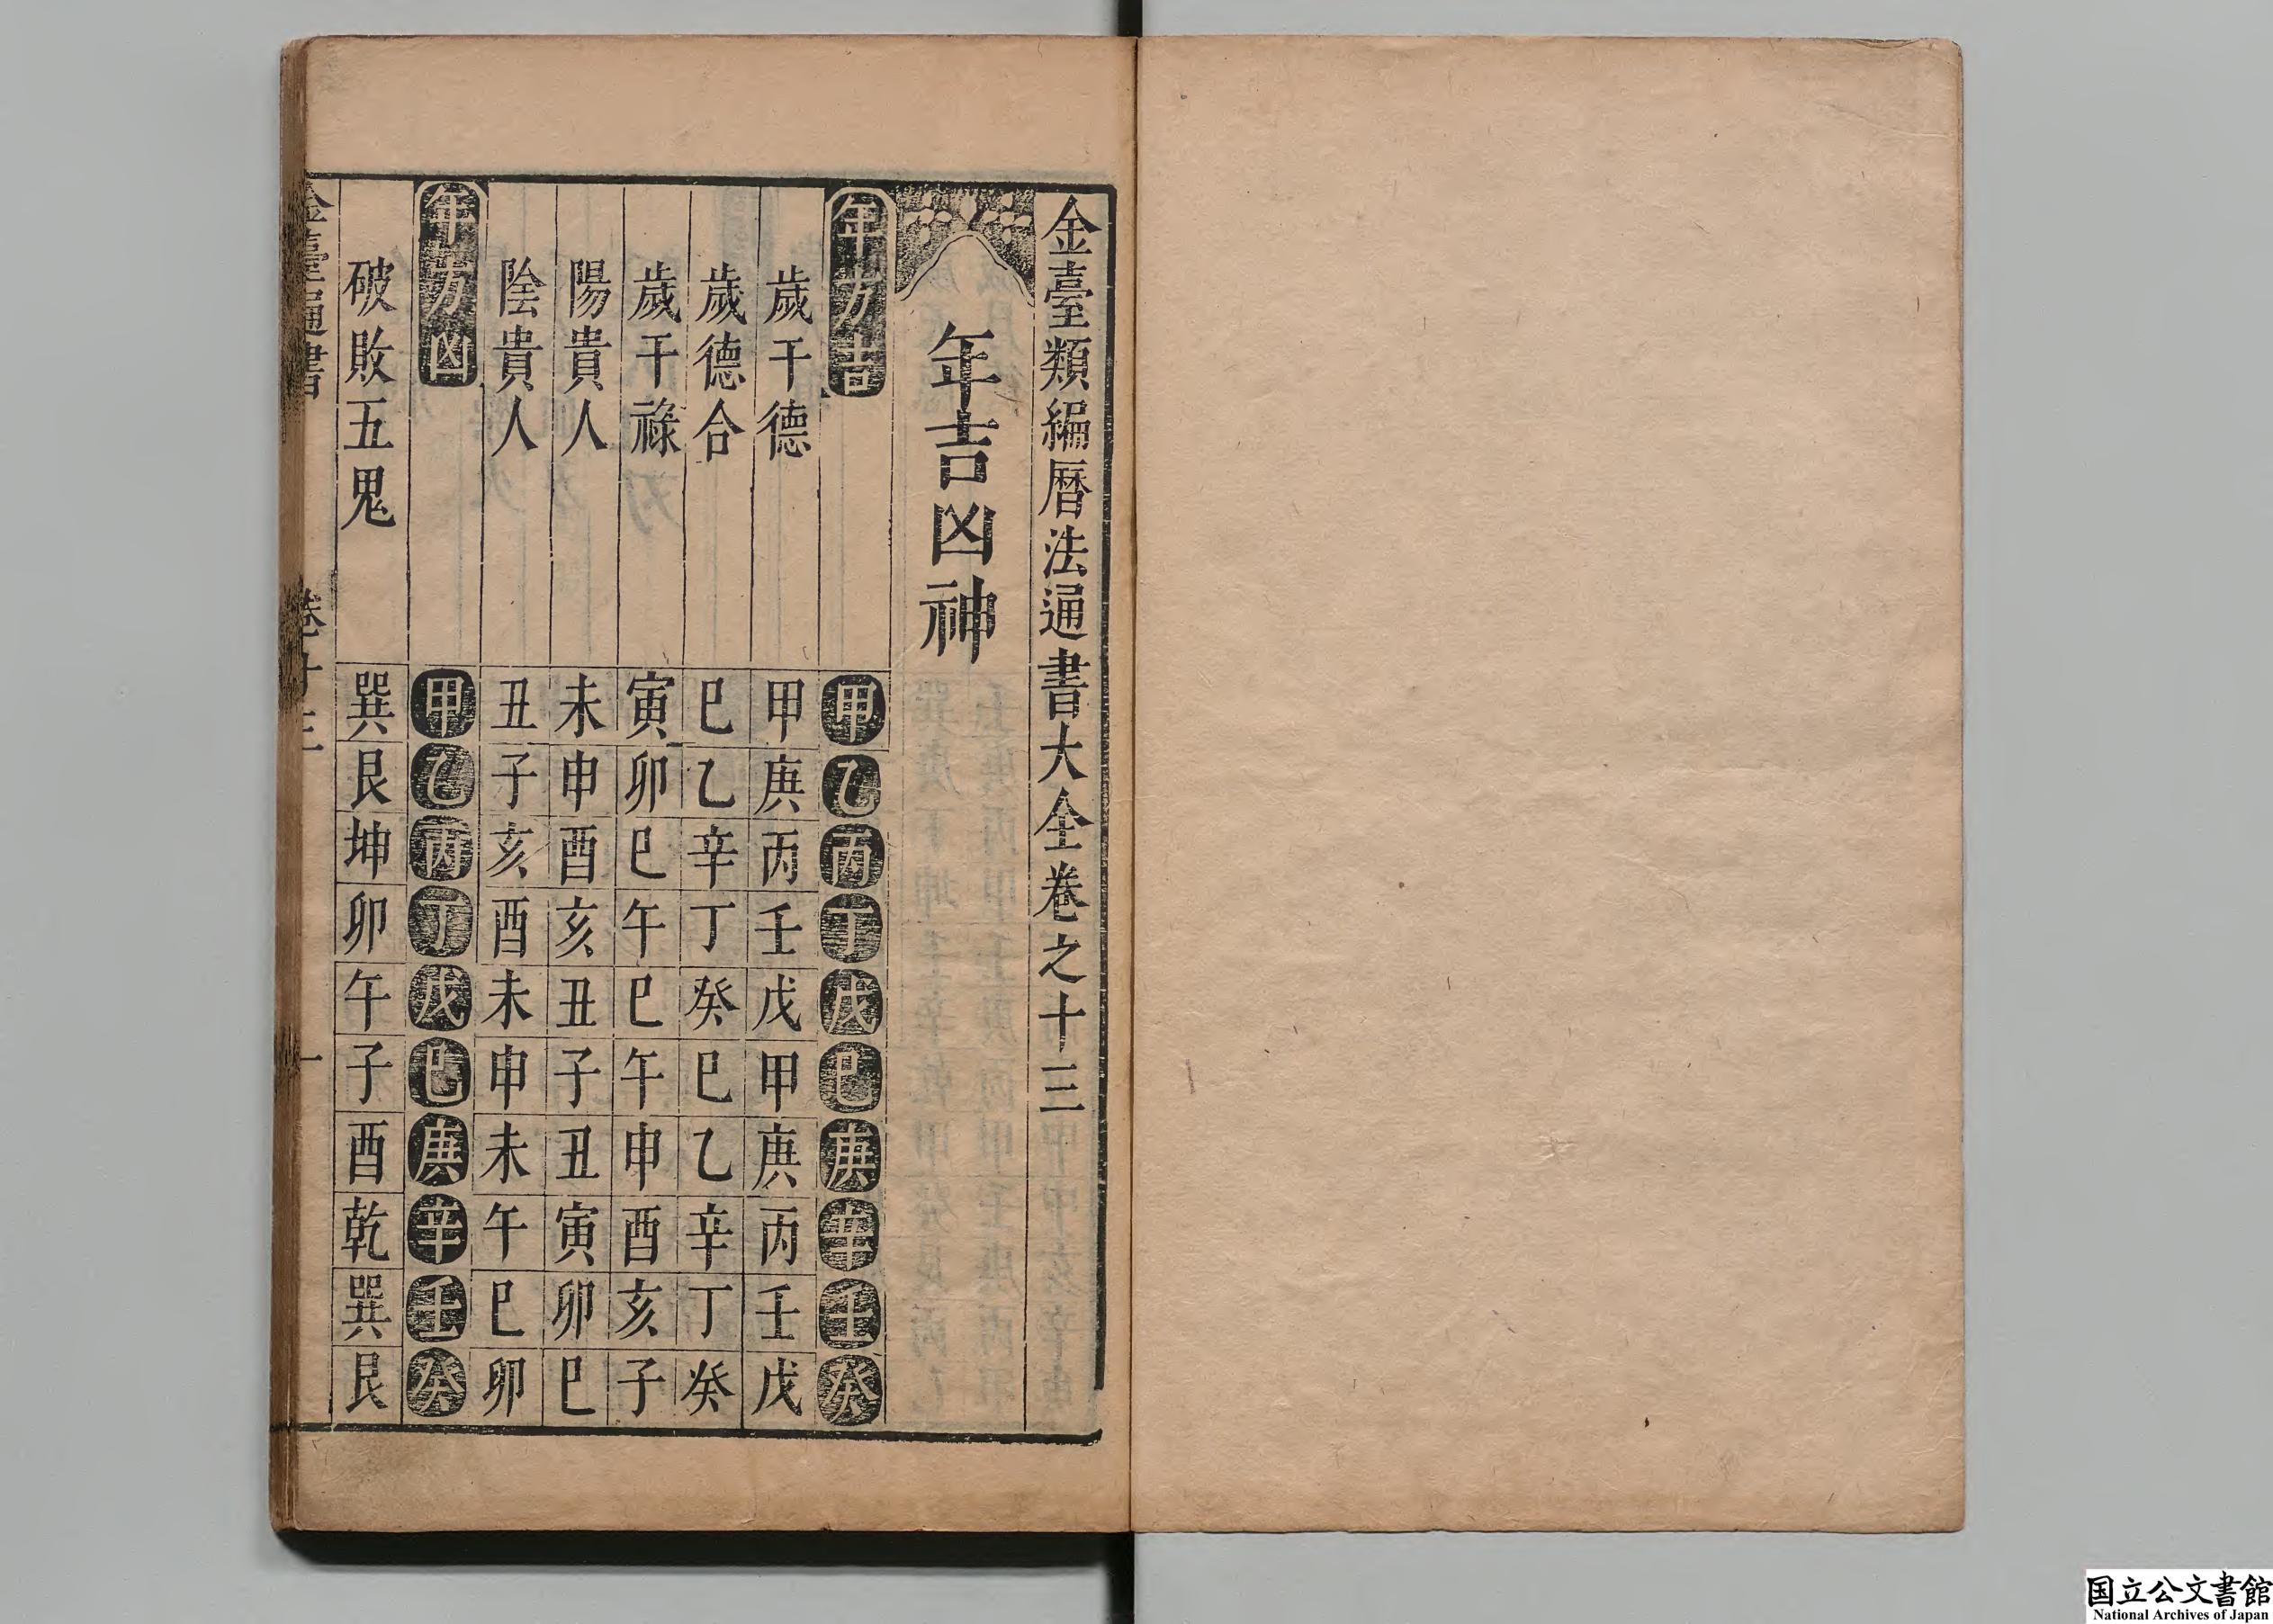 金臺類編曆法通書大全卷之十三
年吉凶神
年方吉 甲乙丙丁戊巳庚辛壬癸
歲干德 甲庚丙壬戊甲庚丙壬戊
歲德合 巳乙辛丁癸巳乙辛丁癸
歲干祿 寅卯巳午巳午申酉亥子
陽貴人 未申酉亥丑子丑寅卯巳
陰貴人 丑子亥酉未申未午巳卯
年方凶 甲乙丙丁戊巳庚辛壬癸
破敗五鬼 巽艮坤卯午子酉乾巽艮
金臺通書 卷十三 一
国立公文書館
National Archives of Japan